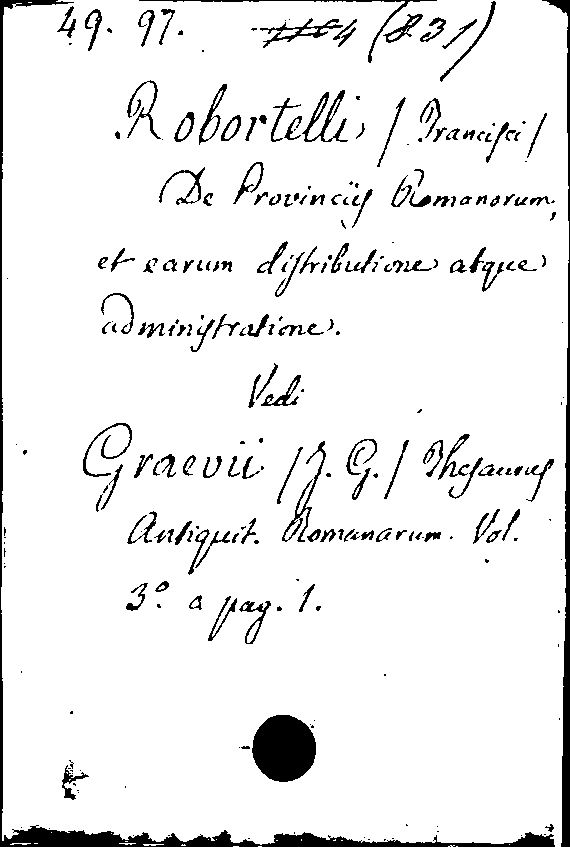 49. 97. 4 (831)
Robortelli, / Francisci /
De Provinciis Romanorum,
et earum distributione atque
administratione.
Vedi
Graevii / J. G. / Thesaurus
Antiquit. Romanarum. Vol.
3º. a pag. 1.